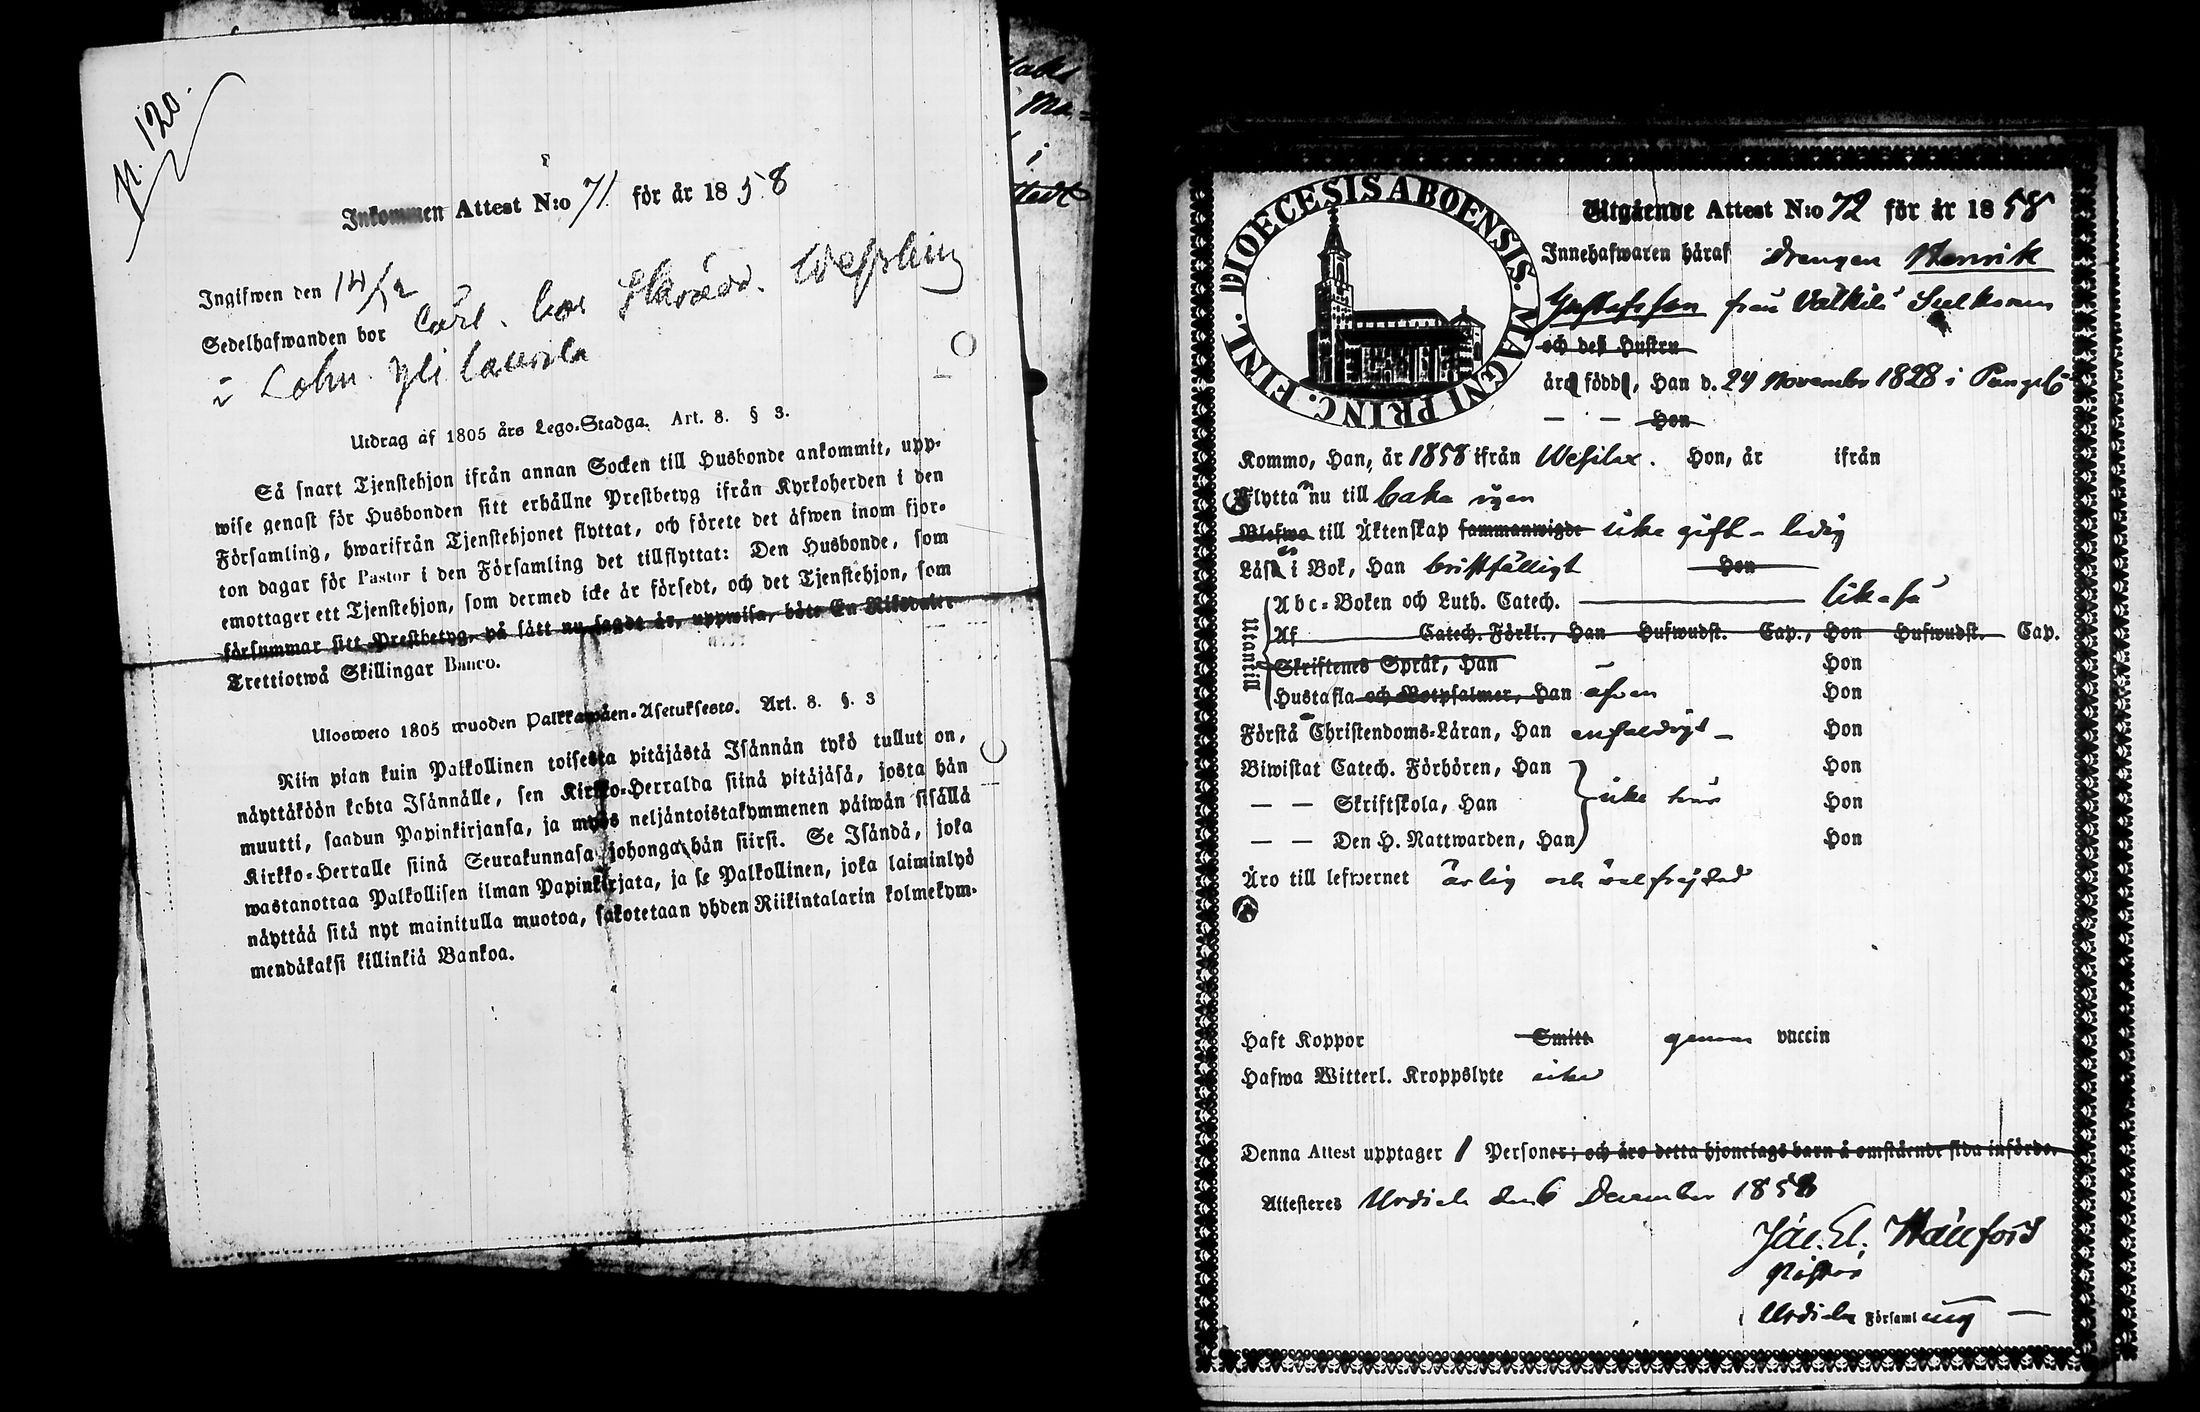 N. 120.
Inkommen Attest N:o 71 för år 1858
Ingifwen den 14/12
Sedelhafwanden bor Carl.
i Yli
Utdrag af 1805 års Lego-Stadga. Art. 8. § 3.
Så snart Tjenstehjon ifrån annan Socken till Husbonde ankommit, upp-
wise genast för Husbonden sitt erhållne Prestbetyg ifrån Kyrkoherden i den
Församling, hwarifrån Tjenstehjonet flyttat, och förete det äfwen inom fjor-
ton dagar för Pastor i den Församling det tillflyttat: Den Husbonde, som
emottager ett Tjenstehjon, som dermed icke är försedt, och det Tjenstehjon, som
försummar sitt Prestbetyg, på sätt nu sagdt är, uppwisa, böte En Riksdaler
Trettiotwå Skillingar Banco.
Ulosweto 1805 wuoden Palkkawäen-Asetuksesta. Art. 8. §. 3
Niin pian kuin Palkollinen toisesta pitäjästä Isännän tykö tullut on,
näyttäköön kohta Isännälle, sen Kirkko-Herralda siinä pitäjäsä, josta hän
muutti, saadun Papinkirjansa, ja myös neljäntoistakymmenen päiwän sisällä
Kirkko-Herralle siinä Seurakunnasa johonga hän siirsi. Se Isändä, joka
wastanottaa Palkollisen ilman Papinkirjata, ja se Palkollinen, joka laiminlyö
näyttää sitä nyt mainitulla muotoa, sakotetaan yhden Riikintalarin kolmekym-
mendäkaksi killinkiä Bankoa.
DIOECESIS ABOENSIS. MAGNI PRINC. FINL.
Utgående Attest N:o 72 för år 1858
Innehafwaren häraf Drengen Henrik
Gustafsson från
och dess Hustru
äro födde, Han d. 24 November 1828 i
— — Hon
Kommo, Han, år 1858 ifrån Wesilax. Hon, år ifrån
Flytta nu till baka igen
Blefwo till Äktenskap sammanwigde icke gift - ledig
Läsa i Bok, Han bristfälligt Hon
Utantill
Abc-Boken och Luth. Catech. likaså
Af Catech. Förkl., Han Hufwudst. Cap., Hon Hufwudst. Cap.
Skriftenes Språk, Han Hon
Hustafla och Botpsalmer, Han äfven Hon
Förstå Christendoms-Läran, Han enfaldigt Hon
Biwistat Catech. Förhören, Han Hon
— — Skriftskola, Han icke här Hon
— — Den H. Nattwarden, Han Hon
Äro till lefwernet ärlig och välfrejdad
Haft Koppor Smitt genom vaccin
Hafwa Witterl. Kroppslyte icke
Denna Attest upptager 1 Personer; och äro detta hjonelags barn å omstående sida införde.
Attesteras Urdiala den 6 December 1858
Wallfors
Pastor
Urdiala Församling